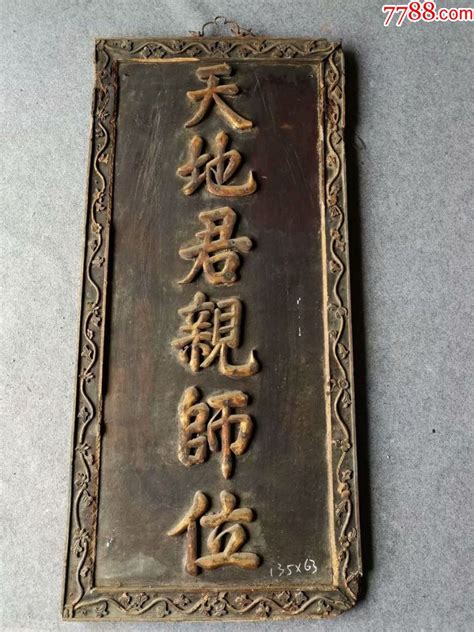 7788.com
天地君親師位
135×63